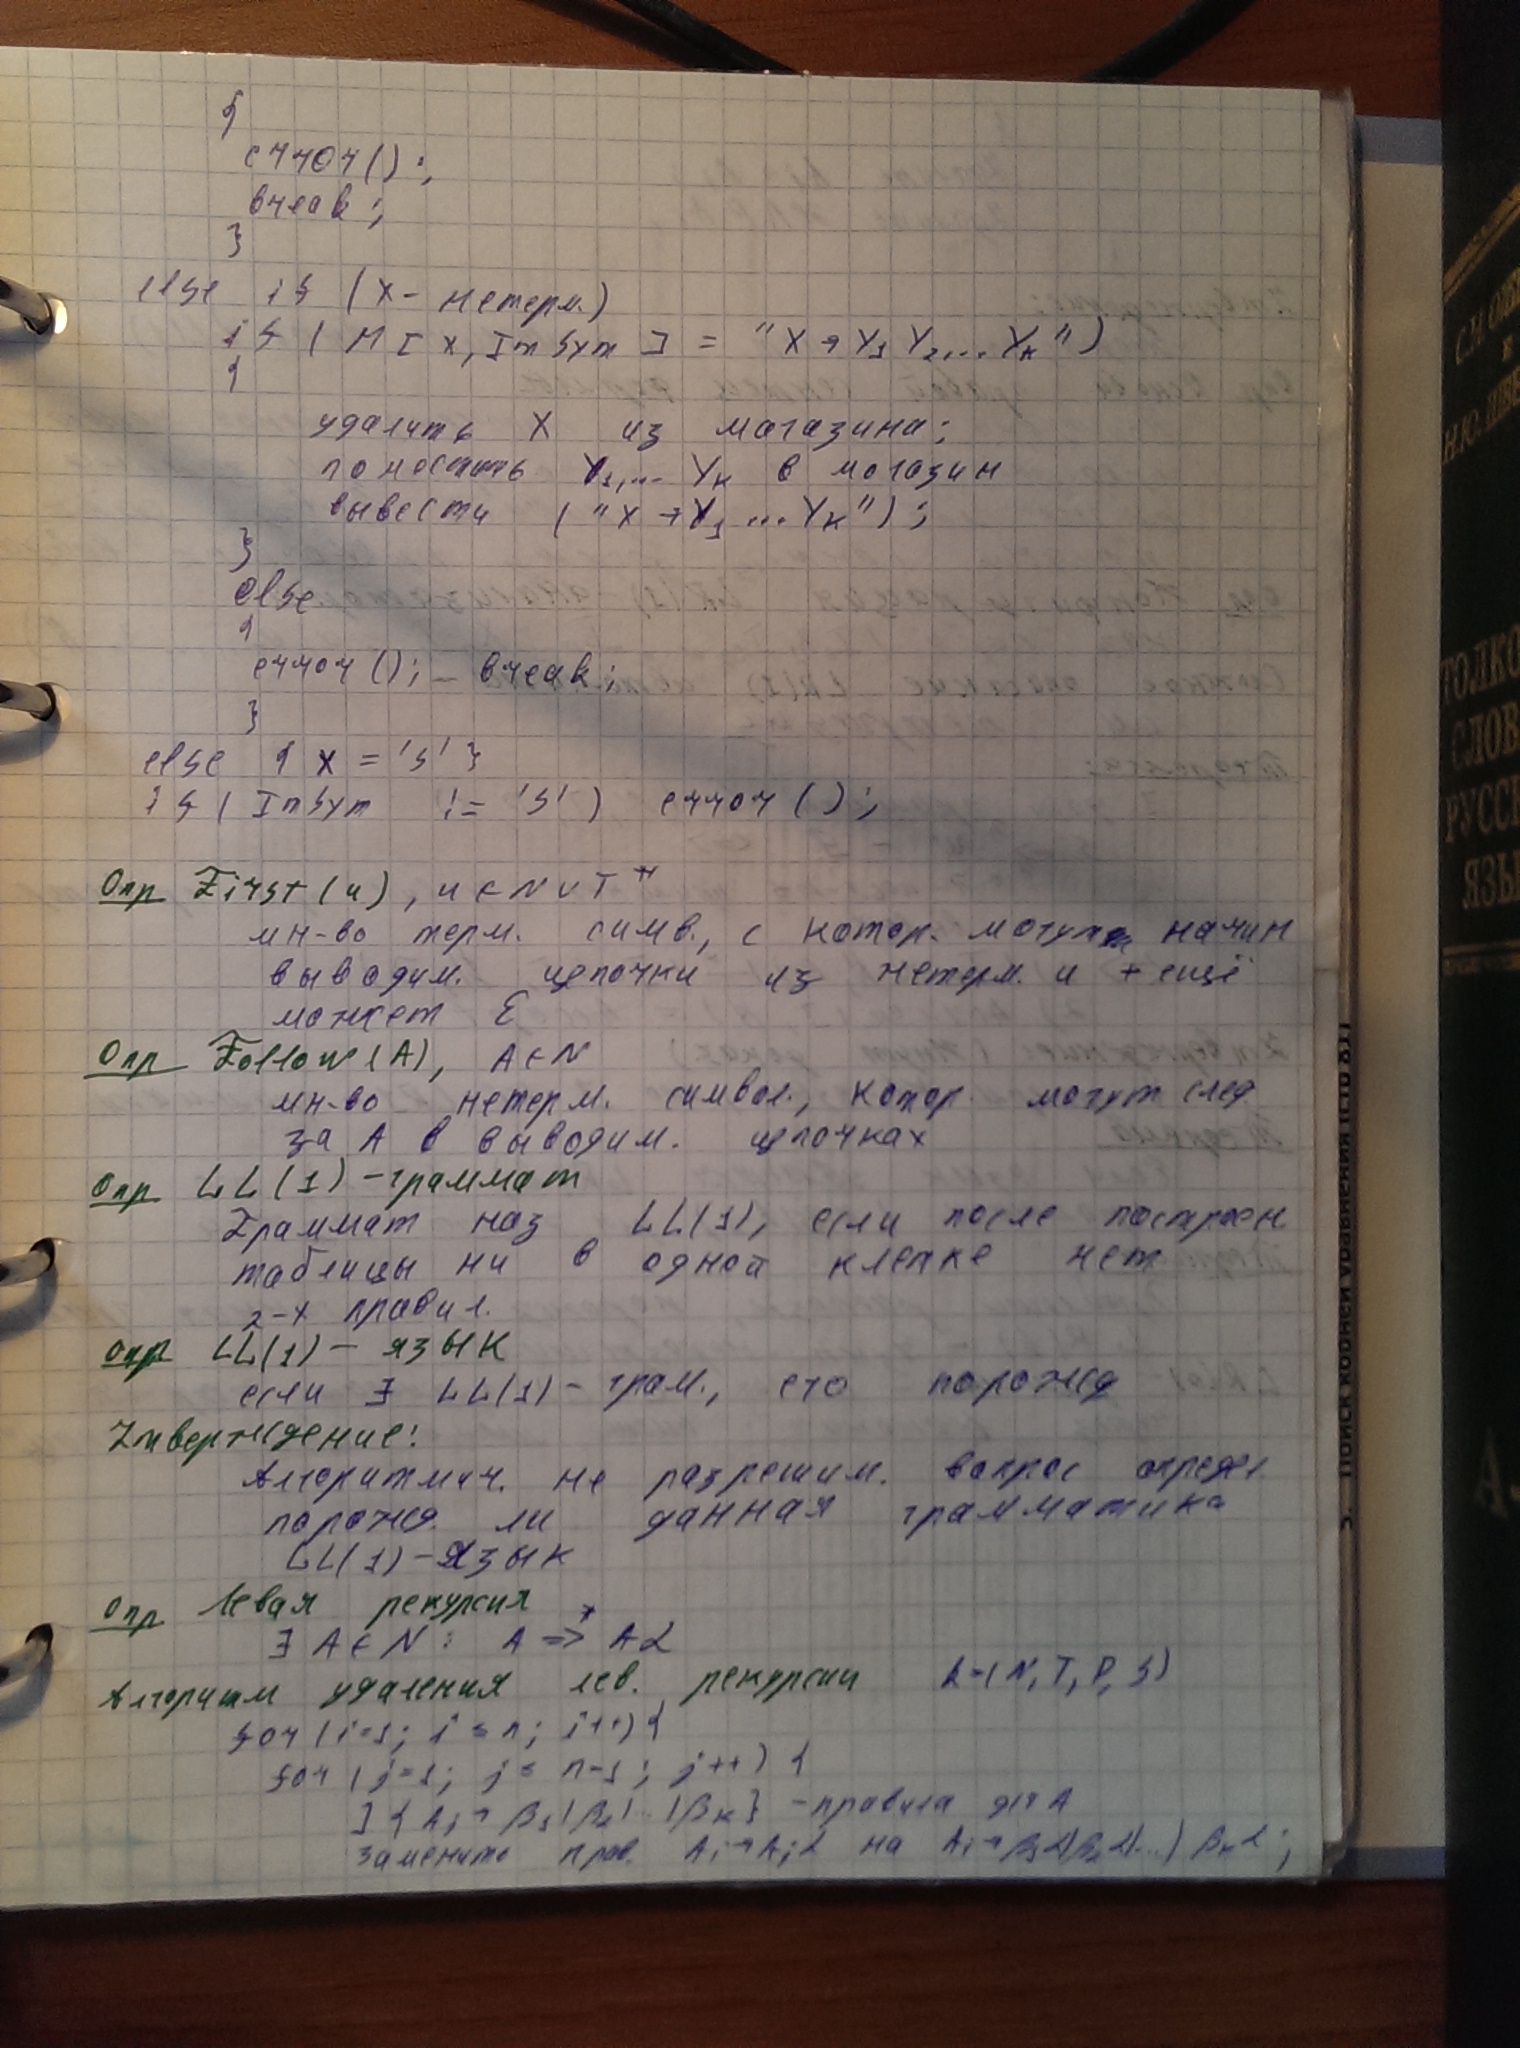 {
error();
break;
}
else if (X - нетерм.)
if (M[X, InSym] = "X → Y1 Y2,... Yk")
{
удалить X из магазина;
поместить Y1,... Yk в магазин
вывести ("X → Y1 ... Yk");
}
else
{
error(); - break;
}
else { X = 'S' }
if (InSym != 'S') error();
Опр First(u), u ∈ N ∪ T *
мн-во терм. симв., с котор. могут начин
выводим. цепочки из нетерм. u + ещё
может ε
Опр Follow(A), A ∈ N
мн-во нетерм. символ., котор. могут след
за A в выводим. цпочках
Опр LL(1) - граммат
Граммат наз LL(1), если после построен
таблицы ни в одной клетке нет
2-х правил.
Опр LL(1) - язык
если ∃ LL(1) - грам., его порожд
Утверждение:
Алгоритмич. не разрешим. вопрос определ
порожд. ли данная грамматика
LL(1) - язык
Опр Левая рекурсия
∃ A ∈ N : A =>* Aα
Алгоритм удаления лев. рекурсии (N, T, P, S)
for (i=1; i ≤ n; i++) {
for (j=1; j ≤ n-1; j++) {
] { Aj → β1 | β2 | ... | βk } - правила для A
заменить прав. Ai → Ajα на Ai → β1α | β2α | ... | βkα;
ТОЛКО
СЛОВ
РУССК
ЯЗЫ